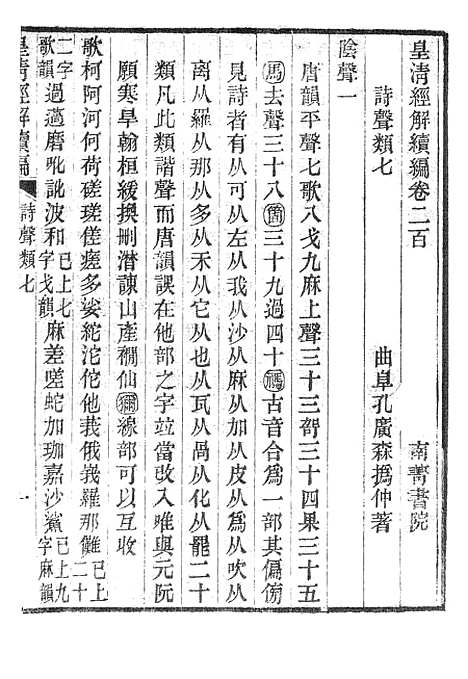 皇清經解續編卷二百　南菁書院
詩聲類七　曲阜孔廣森撝仲著
陰聲一
唐韻平聲七歌八戈九麻上聲三十三哿三十四果三十五
馬去聲三十八箇三十九過四十禡古音合爲一部其偏傍
見詩者有从可从左从我从沙从麻从加从皮从爲从吹从
离从羅从那从多从禾从它从也从瓦从咼从化从罷二十
類凡此類諧聲而唐韻誤在他部之字竝當改入唯與元阮
願寒旱翰桓緩換刪潸諫山產襇仙獮線部可以互收
歌柯阿河何荷磋瑳傞瘥多娑紽沱佗他莪俄我羅那儺已上二十
二字歌韻過薖磨吪訛波和已上七字戈韻麻差嗟蛇加珈嘉沙鯊已上九字麻韻
皇清經解續編　詩聲類七　一